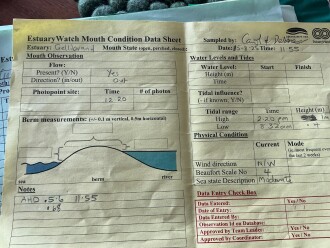 EstuaryWatch Mouth Condition Data Sheet
Estuary:
Mouth State (open, perched, closed):
Mouth Observation
Flow:
Present? (Y/N) Yes
Direction? (in/out) Out
Photopoint site: Time # of photos
12.20
Berm measurements: (+/- 0.1 m vertical, 0.5m horizontal)
sea berm river
Notes
AHD .56 11:55
.68
Sampled by: Carol &
Date: 11:55
Water Levels and Tides
Water Level: Start Finish
Height (m)
Time
Tidal influence?
(- if known, Y/N)
Tidal range Time Height (m)
High 2.20
Low 8.32 0.4
Physical Condition
Current
Wind direction NW
Beaufort Scale No 4
Sea state Description Moderate
Data Entry Check Box
Data Entered: Yes / No
Date of Entry:
Data Entered By:
Observation Id on Database:
Approved by Team Leader: Yes / No
Approved by Coordinator: Yes / No